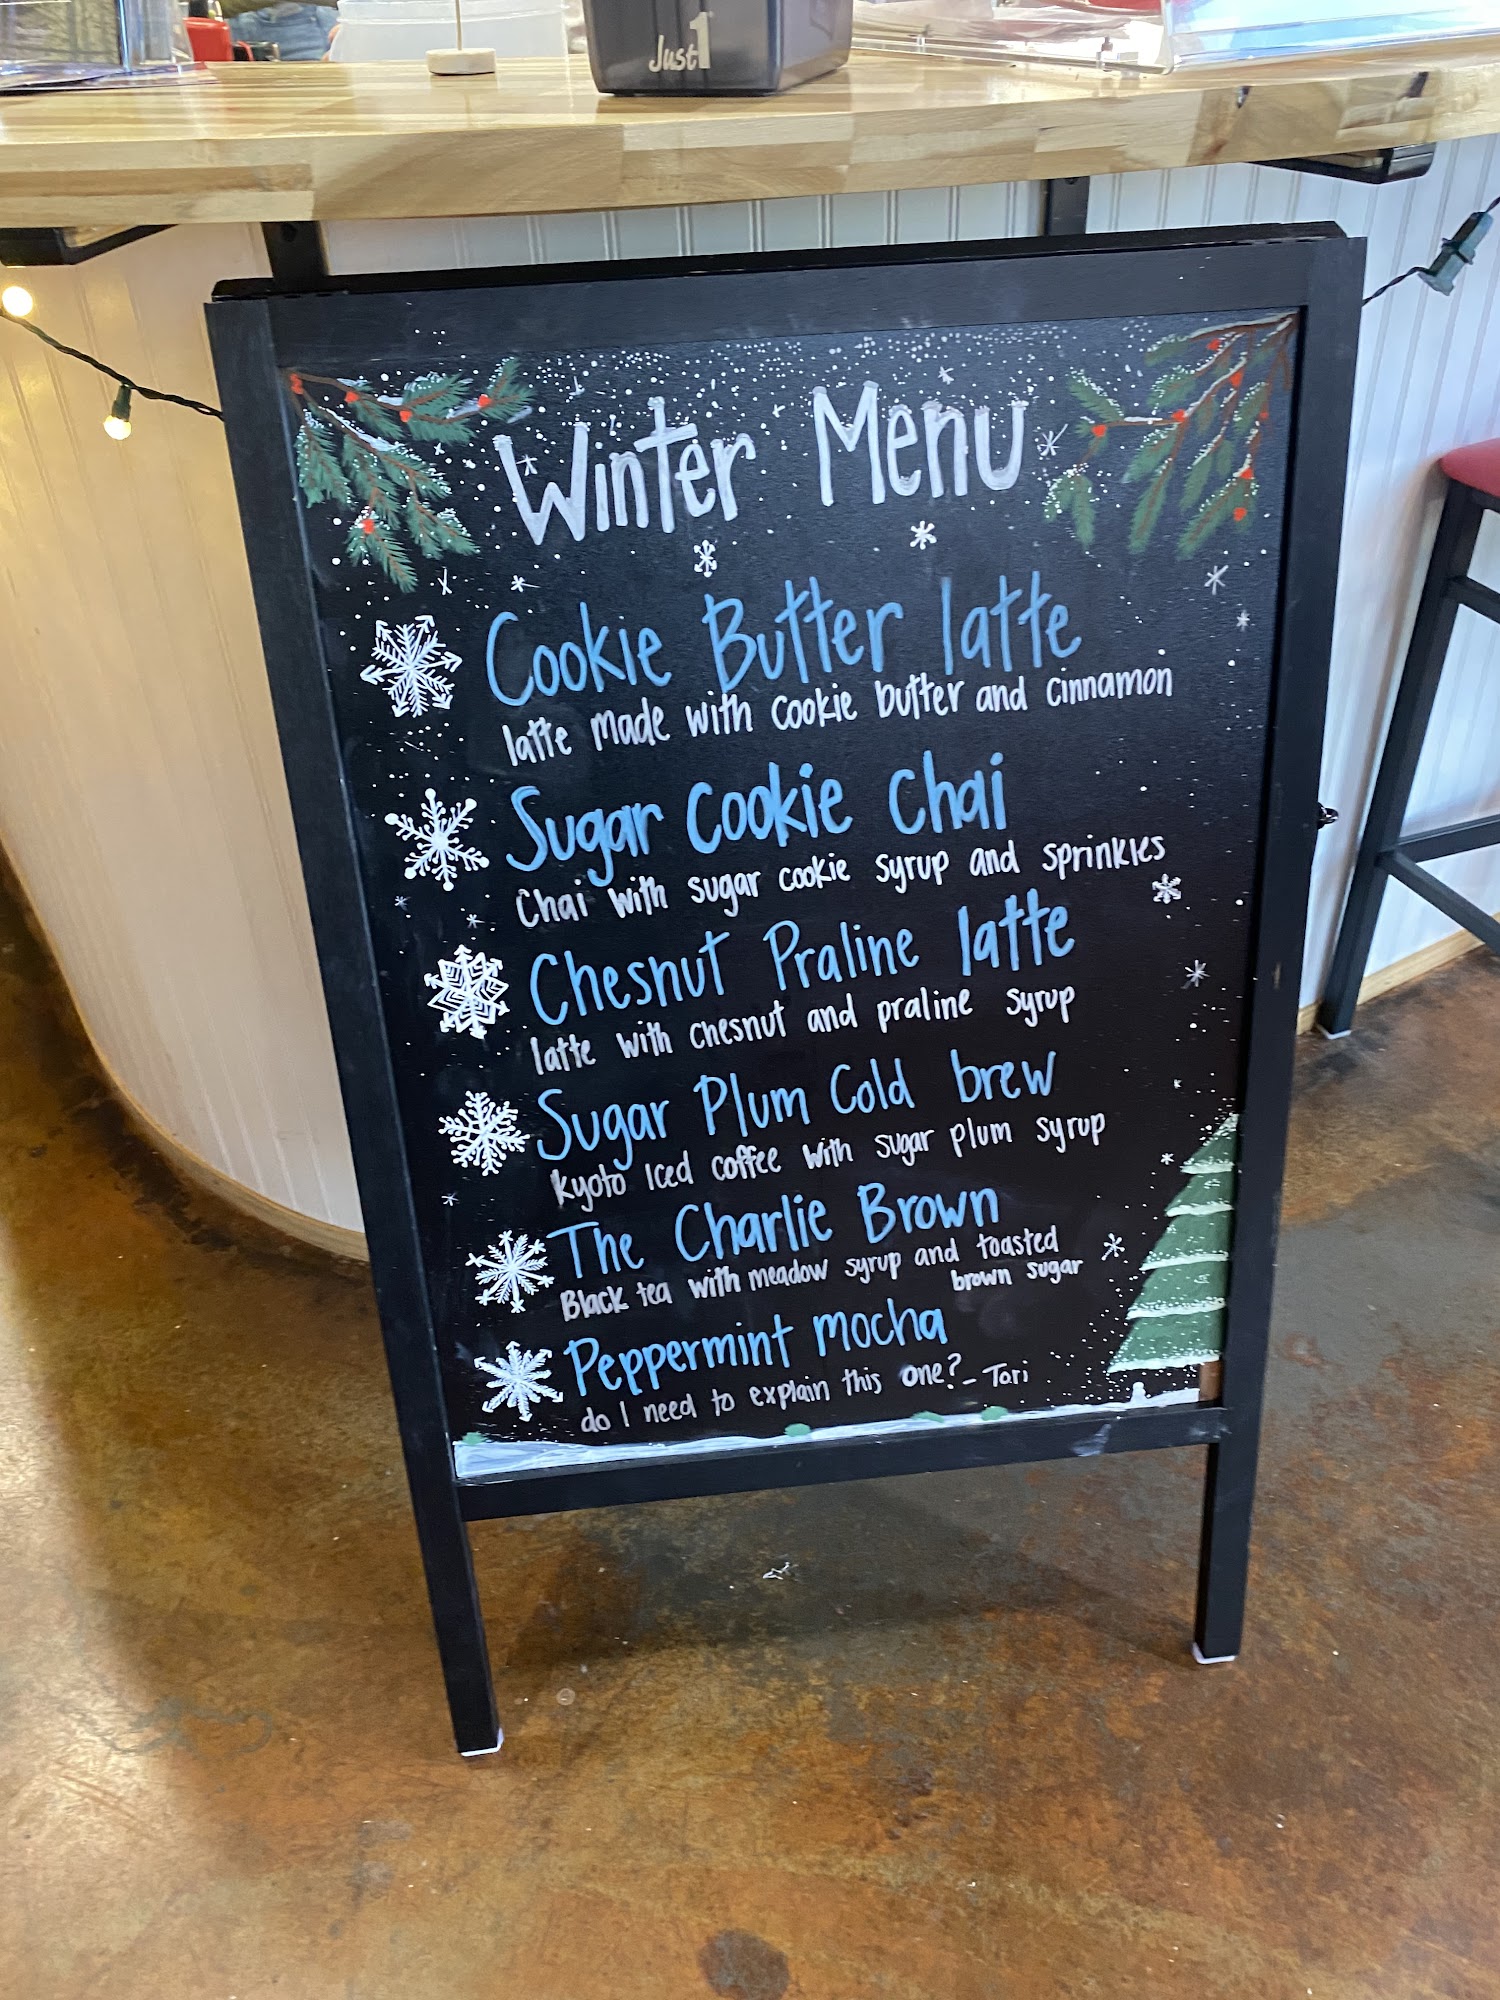 Just 1
Winter Menu
Cookie Butter latte
latte made with cookie butter and cinnamon
Sugar Cookie Chai
Chai with sugar cookie syrup and sprinkles
Chesnut Praline latte
latte with chesnut and praline syrup
Sugar Plum Cold brew
kyoto Iced coffee with sugar plum syrup
The Charlie Brown
Black tea with meadow syrup and toasted
brown sugar
Peppermint mocha
do I need to explain this one? - Tori